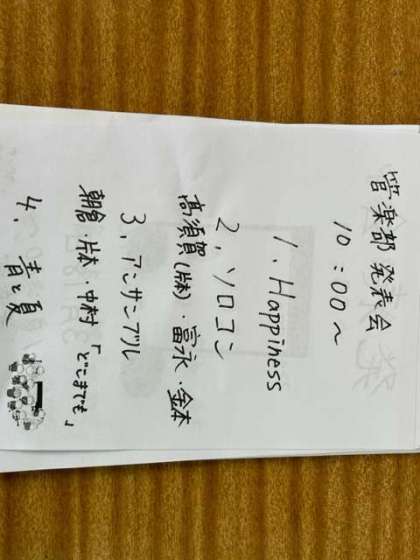 管楽部 発表会
10:00〜
1. Happiness
2. ソロコン
高須賀(片本)・富永・金本
3. アンサンブル
朝倉・片本・中村「どこまでも」
4. 青と夏